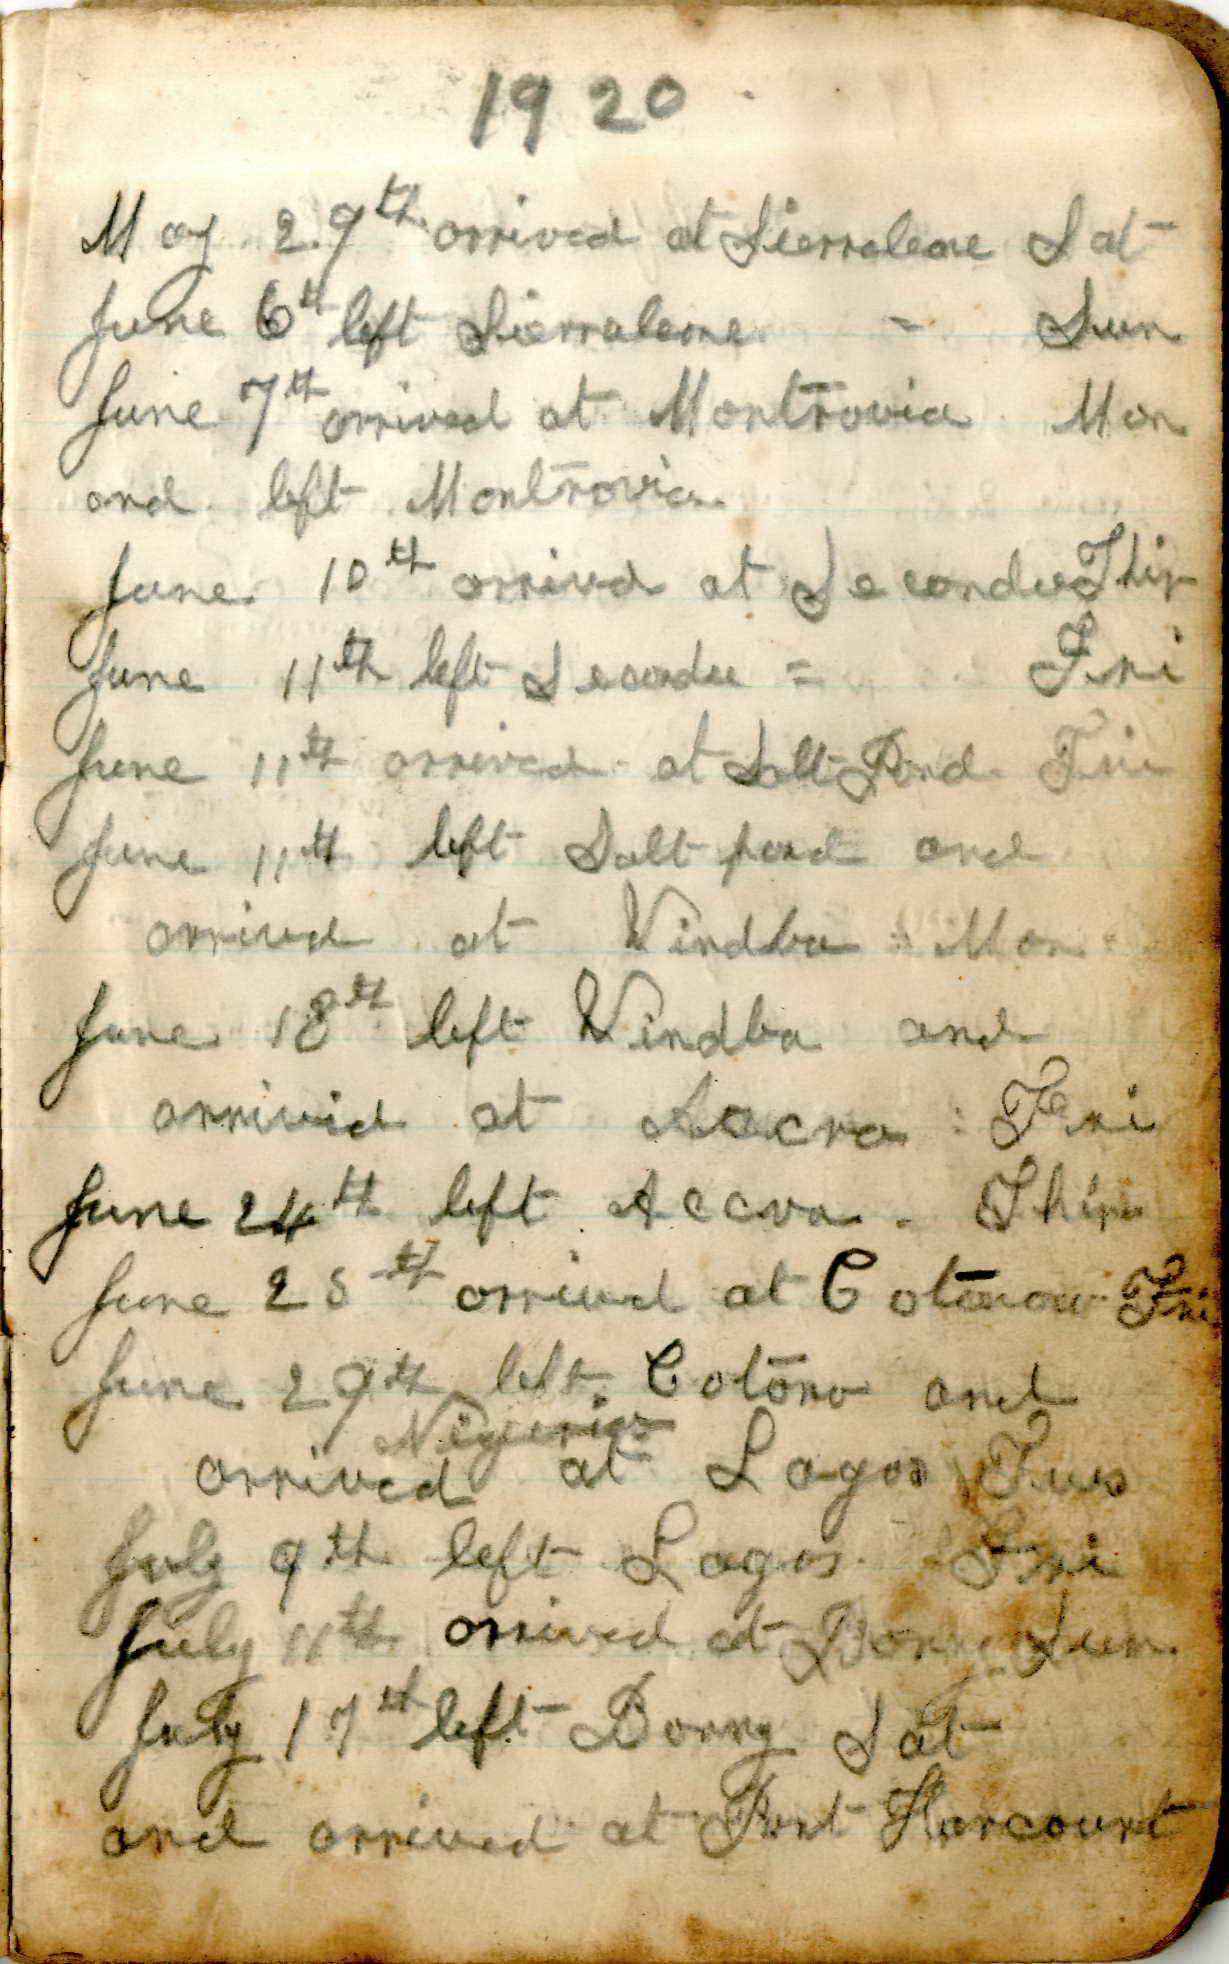 1920
May 29th arrived at Sierraleone Sat
June 6th left Sierraleone - Sun
June 7th arrived at Montrovia Mon
and left Montrovia
June 10th arrived at Secondee Thir
June 11th left Secondee = Fri
June 11th arrived at Salt Pond Fri
June 11th left Salt pond and
arrived at Windba Mon
June 18th left Windba and
arrived at Accra : Fri
June 24th left Accra - Thir
June 25th arrived at Cotonow Fri
June 29th left Cotono and
Nigeria
arrived at Lagos Tues
July 9th left Lagos Fri
July 11th arrived at Bonny Sun
July 17th left Bonny Sat
and arrived at Port Harcourt